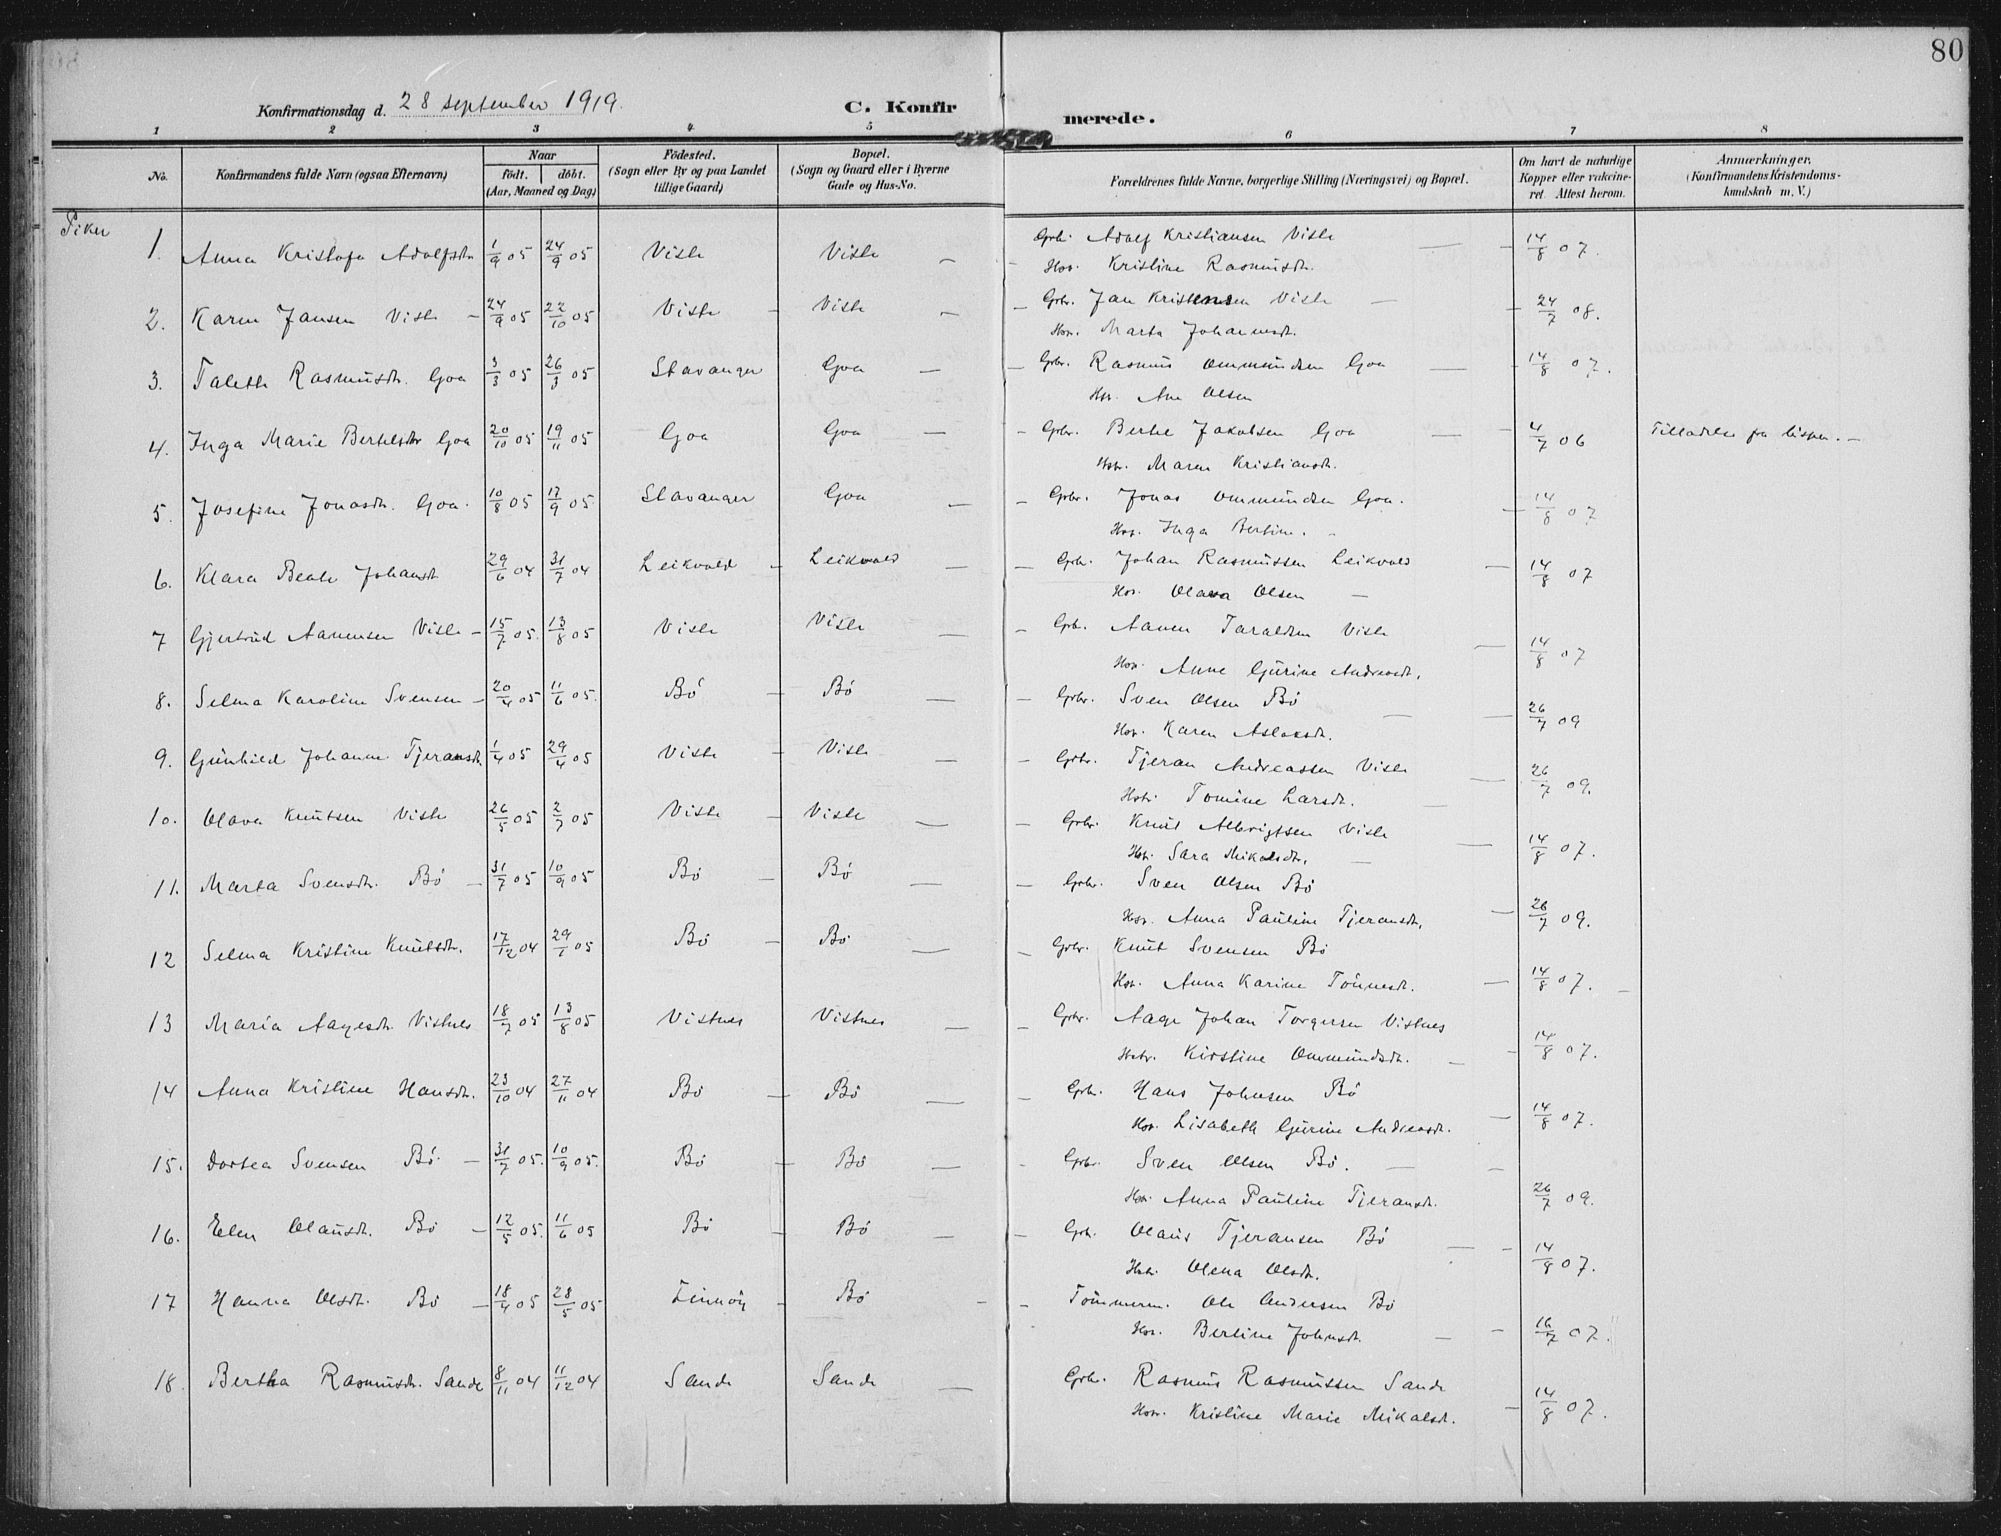 80
Konfirmationsdag d. 28 september 1919.
C. Konfirmerede.
1 2 3 4 5 6 7 8
No.
Konfirmandens fulde Navn (ogsaa Efternavn)
Naar
födt. döbt.
(Aar, Maaned og Dag)
Födested.
(Sogn eller By og paa Landet
tillige Gaard)
Bopæl.
(Sogn og Gaard eller i Byerne
Gade og Hus-No.
Forældrenes fulde Navne, borgerlige Stilling (Næringsvei) og Bopæl.
Om havt de naturlige
Kopper eller vakcine-
ret. Attest herom.
Anmærkninger,
(Konfirmandens Kristendoms-
kundskab m. V.)
Piker
1. Anna Kristofa Adolfsdtr 1/9 05 24/9 05 Viste Viste — Grbr. Adolf Kristiansen Viste — 14/8 07.
Hstr. Kristine Rasmusdtr.
2. Karen Jansen Viste — 24/9 05 22/10 05 Viste — Viste — Grbr. Jan Kristensen Viste — 24/7 08.
Hstr. Marta Johannesdtr.
3. Taletta Rasmusdtr. Goa 3/3 05 26/3 05 Stavanger Goa — Grbr. Rasmus Ommundsen Goa — 14/8 07.
Hstr. Ane Olsen
4. Inga Marie Bertelsdtr Goa 20/10 05 19/11 05 Goa Goa — Grbr. Berte Jakobsen Goa — 4/7 06 Tilladelse fra bispen. —
Hstr. Maren Kristiansdtr.
5. Josefine Jonasdtr. Goa. 10/8 05 17/9 05 Stavanger Goa — Grbr. Jonas Ommundsen Goa. — 14/8 07
Hstr. Inga Bertine.
6. Klara Beate Johansdtr 29/6 04 31/7 04 Leikvold — Leikvold — Grbr. Johan Rasmussen Leikvold — 14/8 07
Hstr. Olava Olsen —
7 Gjertrud Aanensen Viste — 15/7 05. 13/8 05 Viste Viste — Grb. Aanen Taraldsen Viste — 14/8 07
Hstr. Anne Gurine Andreasdtr.
8. Selma Karoline Svensen — 20/4 05 11/6 05. Bö — Bö — Grbr. Sven Olsen Bö — 26/7 09
Hstr. Karen Aslaksdtr.
9. Gunhild Johanne Tjeransdtr 1/4 05 29/4 05 Viste — Viste — Grbr. Tjeran Andreassen Viste — 26/7 09.
Hstr. Tomine Larsdtr. —
10. Olava Knutsen Viste 26/5 05 2/7 05 Viste — Viste — Grbr. Knut Albrigtsen Viste — 14/8 07.
Hstr. Sara Mikalsdtr. —
11. Marta Svensdtr. Bö — 31/7 05 10/9 05 Bö — Bö — Grbr. Sven Olsen Bö
Hstr. Anna Pauline Tjeransdtr. — 26/7 09.
12 Selma Kristine Knutsdtr. 17/12 04 29/1 05 Bö — Bö — Grbr. Knut Svensen Bö
Hstr. Anna Karine Tönnesdtr. — 14/8 07.
13 Maria Aagesdtr. Vistnes 18/7 05 13/8 05 Vistnes Vistnes — Grbr. Aage Johan Torgersen Vistnes
Hstr. Kirstine Ommundsdtr. — 14/8 07.
14 Anna Kristine Hansdtr. 23/10 04 27/11 04 Bö — Bö — Grbr. Hans Johnsen Bö
Hstr. Lisabeth Gurine Andreasdtr. — 14/8 07.
15. Dortea Svensen Bö — 31/7 05. 10/9 05. Bö — Bö — Grbr. Sven Olsen Bö. —
Hstr. Anna Pauline Tjeransdtr. 26/7 09.
16. Elen Olausdtr. Bö — 12/5 05. 11/6 05 Bö — Bö — Grbr. Olaus Tjeransen Bö
Hstr. Olena Olsdtr. 14/8 07.
17 Hanna Olsdtr. Bö — 18/4 05 28/5 05 — Bö — Tömmerm. Ole Andersen Bö
Hstr. Bertine Johnsdtr. — 16/7 07.
18. Bertha Rasmusdtr. Sande 8/11 04 11/12 04 Sande Sande — Grbr. Rasmus Rasmussen Sande
Hstr. Kristine Marie Mikalsdtr. — 14/8 07.